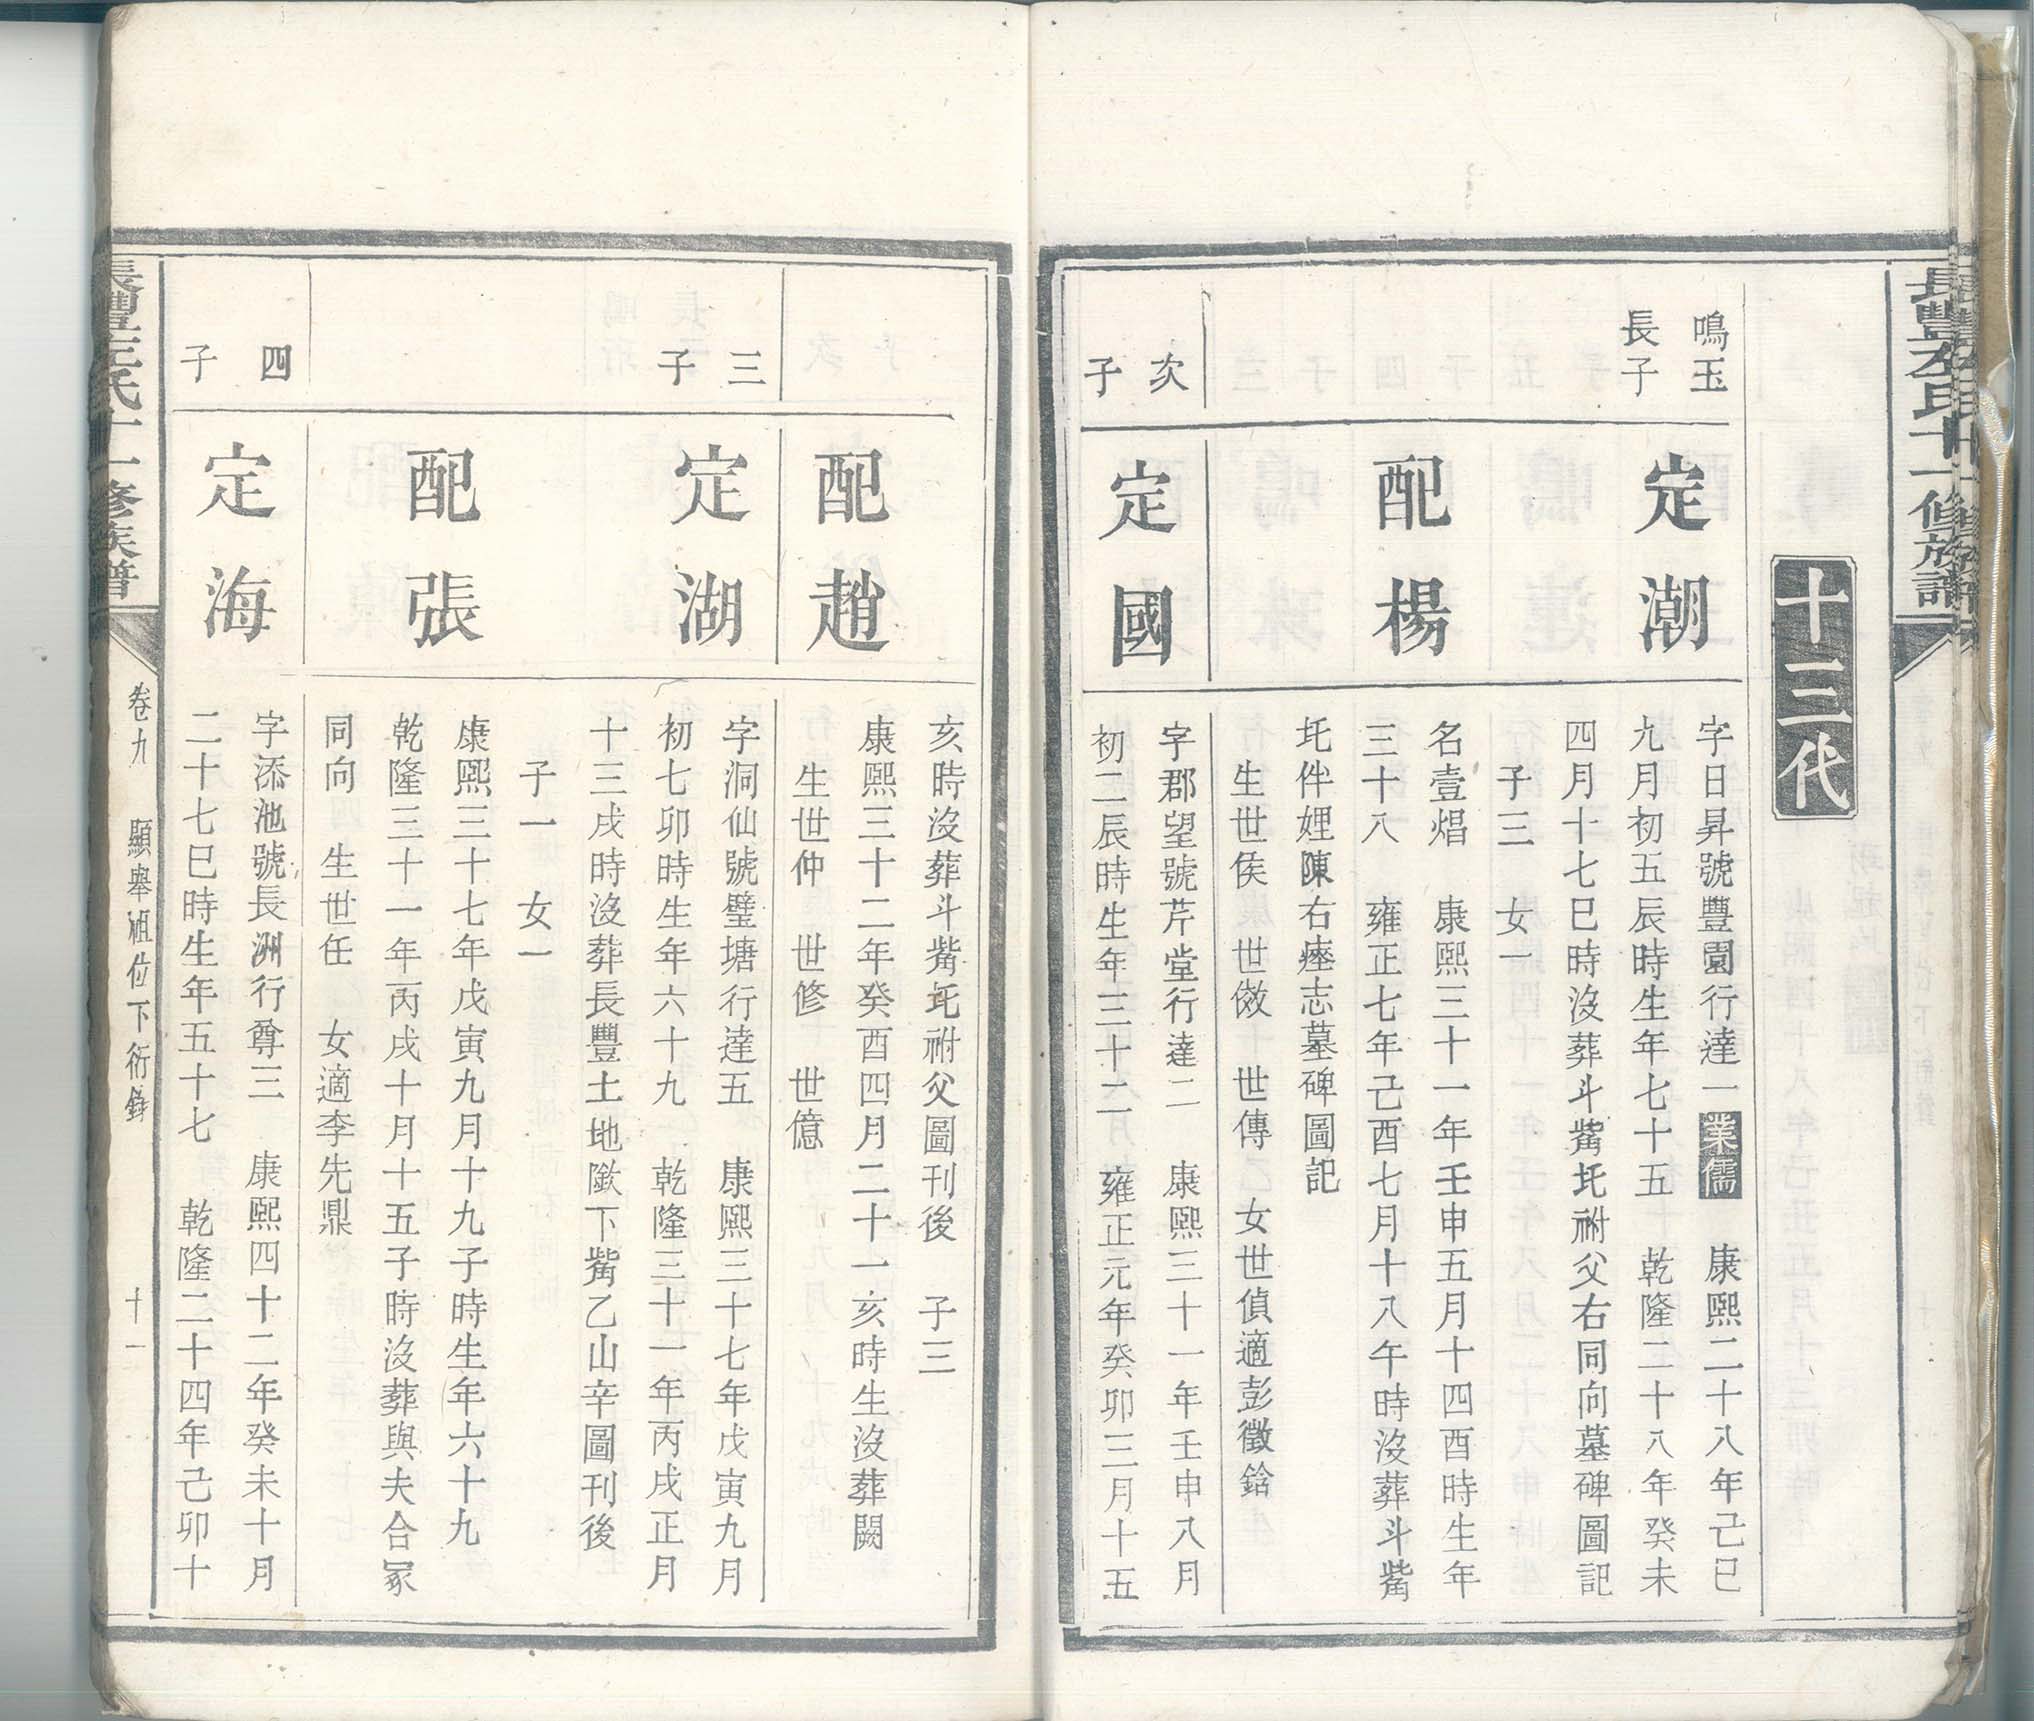 長豐左氏十一修族譜
十三代
鳴玉
長子
定潮
字日昇號豐園行達一業儒 康熙二十八年己巳
九月初五辰時生年七十五 乾隆二十八年癸未
四月十七巳時沒葬斗觜圫祔父右同向墓碑圖記
子三 女一
配楊
名壹焻 康熙三十一年壬申五月十四酉時生年
三十八 雍正七年己酉七月十八午時沒葬斗觜
圫伴娌陳右瘞志墓碑圖記
生世侯 世傚 世傳 女世偵適彭徵鋡
次
子
定國
字郡望號芹堂行達二 康熙三十一年壬申八月
初二辰時生年三十二 雍正元年癸卯三月十五
亥時沒葬斗觜圫祔父圖刊後 子三
配趙
康熙三十二年癸酉四月二十一亥時生沒葬闕
生世仲 世修 世億
三
子
定湖
字洞仙號璧塘行達五 康熙三十七年戊寅九月
初七卯時生年六十九 乾隆三十一年丙戌正月
十三戌時沒葬長豐土地㙁下觜乙山辛圖刊後
子一 女一
配張
康熙三十七年戊寅九月十九子時生年六十九
乾隆三十一年丙戌十月十五子時沒葬與夫合冢
同向 生世任 女適李先鼎
四
子
定海
字添池號長洲行尊三 康熙四十二年癸未十月
二十七巳時生年五十七 乾隆二十四年己卯十
長豐左氏十一修族譜
卷九 顯舉祖位下衍錄 十一